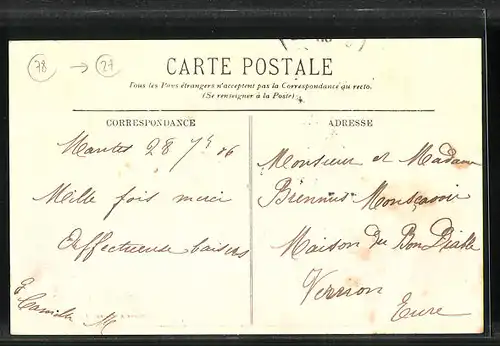 78 → 27
CARTE POSTALE
Tous les Pays étrangers n'acceptent pas la Correspondance au recto.
(Se renseigner à la Poste)
CORRESPONDANCE
ADRESSE
Mantes 28 7bre 06
Mille fois merci
Affectueux baisers
Camille M
Monsieur et Madame
Biennus
Maison du Bon Diable
Vernon
Eure